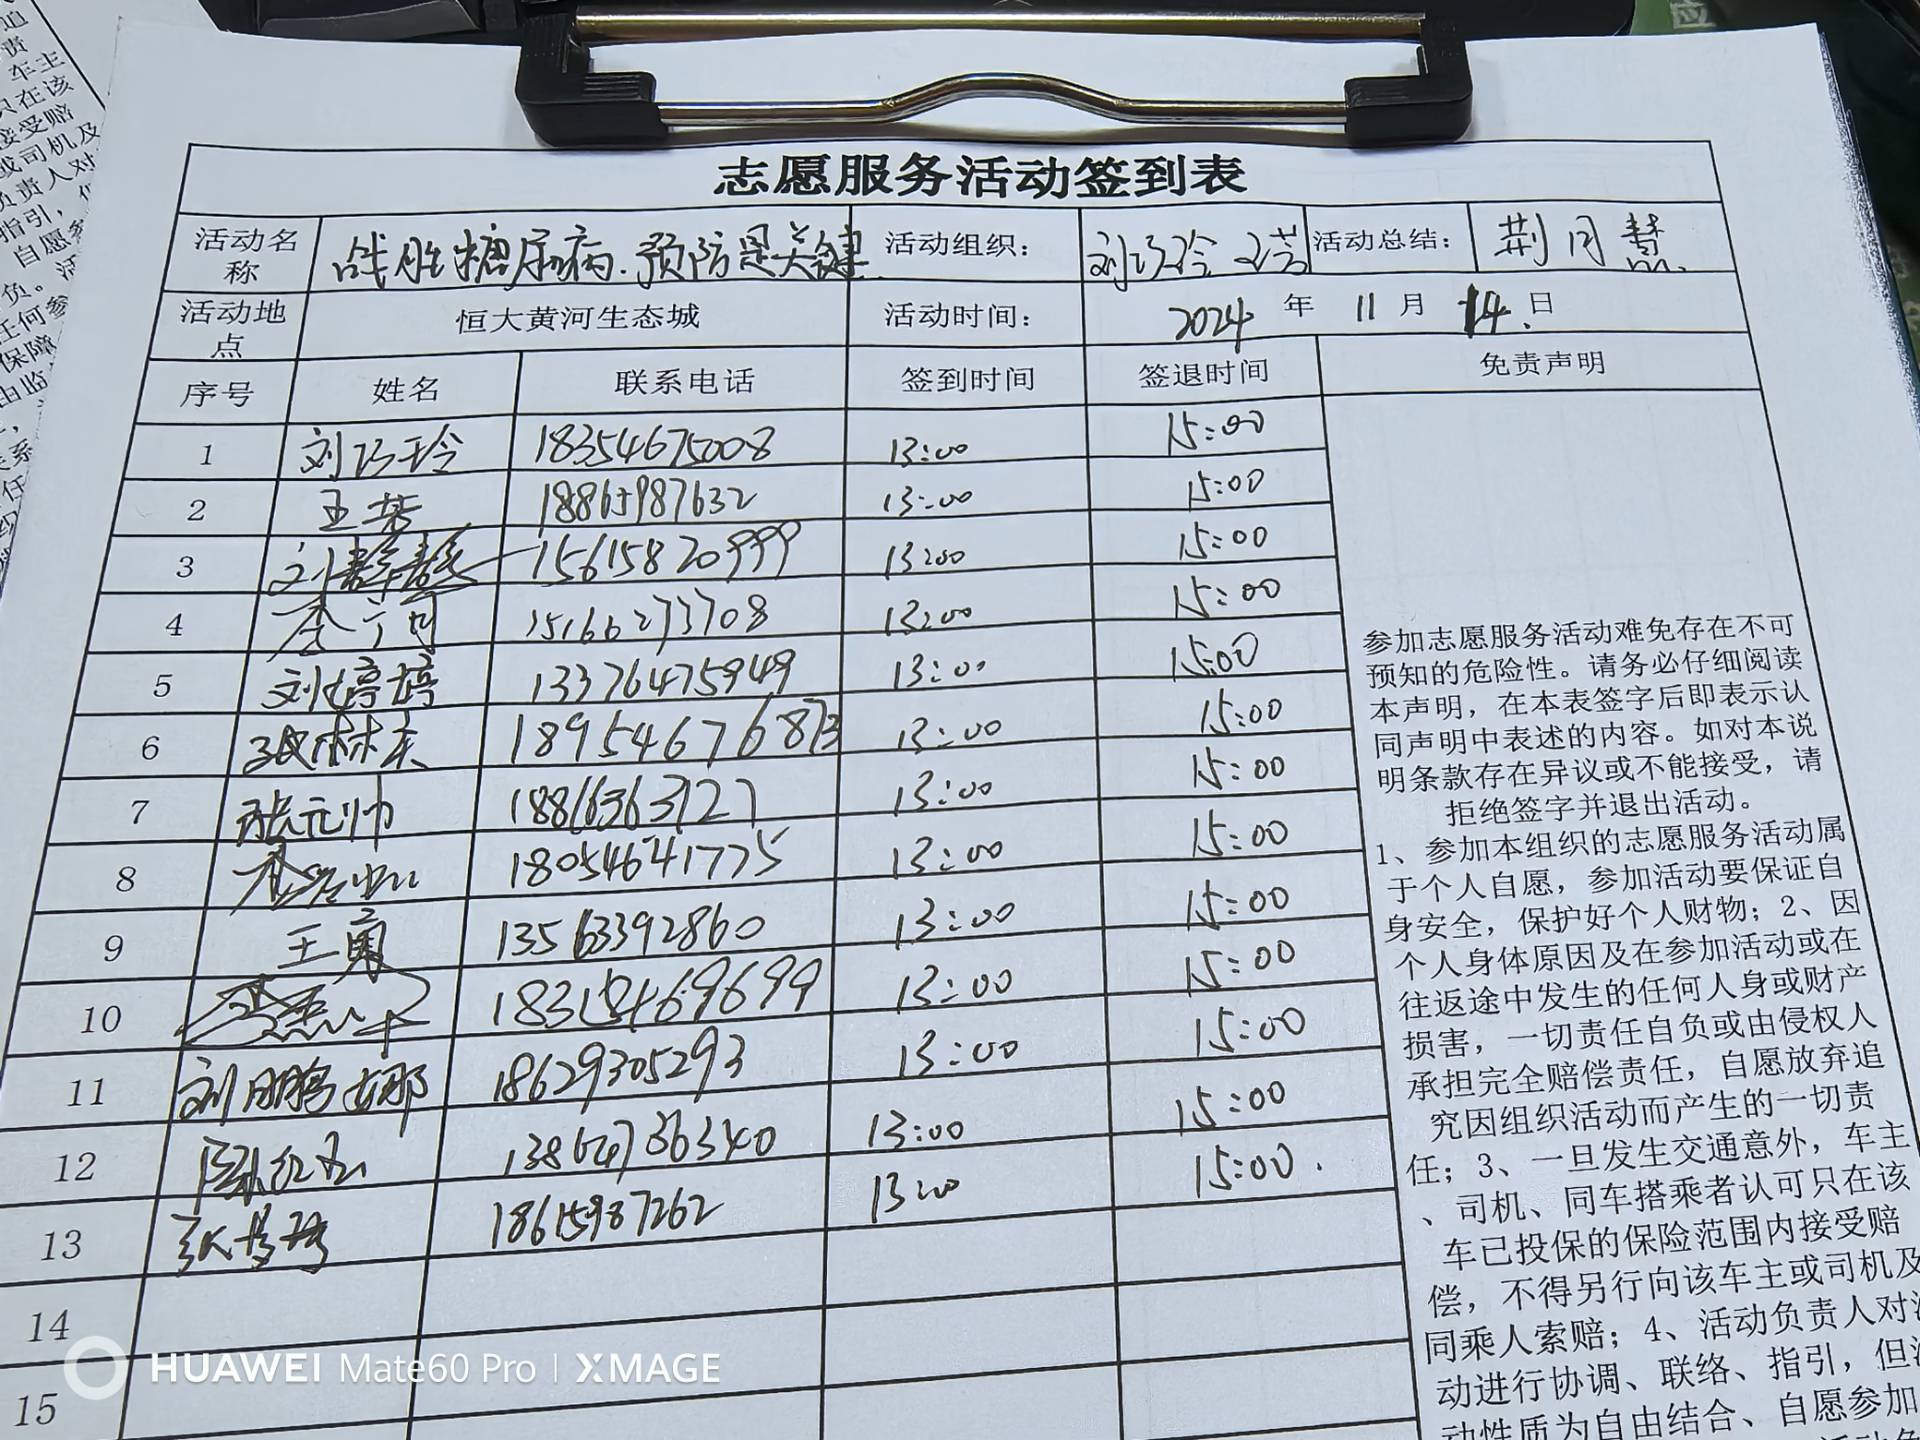 志愿服务活动签到表
活动名称 战胜糖尿病.预防是关键 活动组织: 刘巧玲 王芸 活动总结: 荆月慧
活动地点 恒大黄河生态城 活动时间: 2024 年 11 月 14 日
序号 姓名 联系电话 签到时间 签退时间 免责声明
1 刘巧玲 18354675008 13:00 15:00
2 王芸 18865987632 13:00 15:00
3 15615820999 13:00 15:00
4 李宁 15166273708 13:00 15:00
5 刘婷婷 13376475949 13:00 15:00
6 13:00 15:00
7 张元帅 1886363127 13:00 15:00
8 18054641775 13:00 15:00
9 王勇 13563392860 13:00 15:00
10 13:00 15:00
11 刘鹏娜 18629305293 13:00 15:00
12 13:00 15:00
13 18615987262 13:00 15:00.
14
15
参加志愿服务活动难免存在不可
预知的危险性。请务必仔细阅读
本声明，在本表签字后即表示认
同声明中表述的内容。如对本说
明条款存在异议或不能接受，请
拒绝签字并退出活动。
1、参加本组织的志愿服务活动属
于个人自愿，参加活动要保证自
身安全，保护好个人财物；2、因
个人身体原因及在参加活动或在
往返途中发生的任何人身或财产
损害，一切责任自负或由侵权人
承担完全赔偿责任，自愿放弃追
究因组织活动而产生的一切责
任；3、一旦发生交通意外，车主
、司机、同车搭乘者认可只在该
车已投保的保险范围内接受赔
偿，不得另行向该车主或司机及
同乘人索赔；4、活动负责人对活
动进行协调、联络、指引，但活
动性质为自由结合、自愿参加
HUAWEI Mate60 Pro | XMAGE